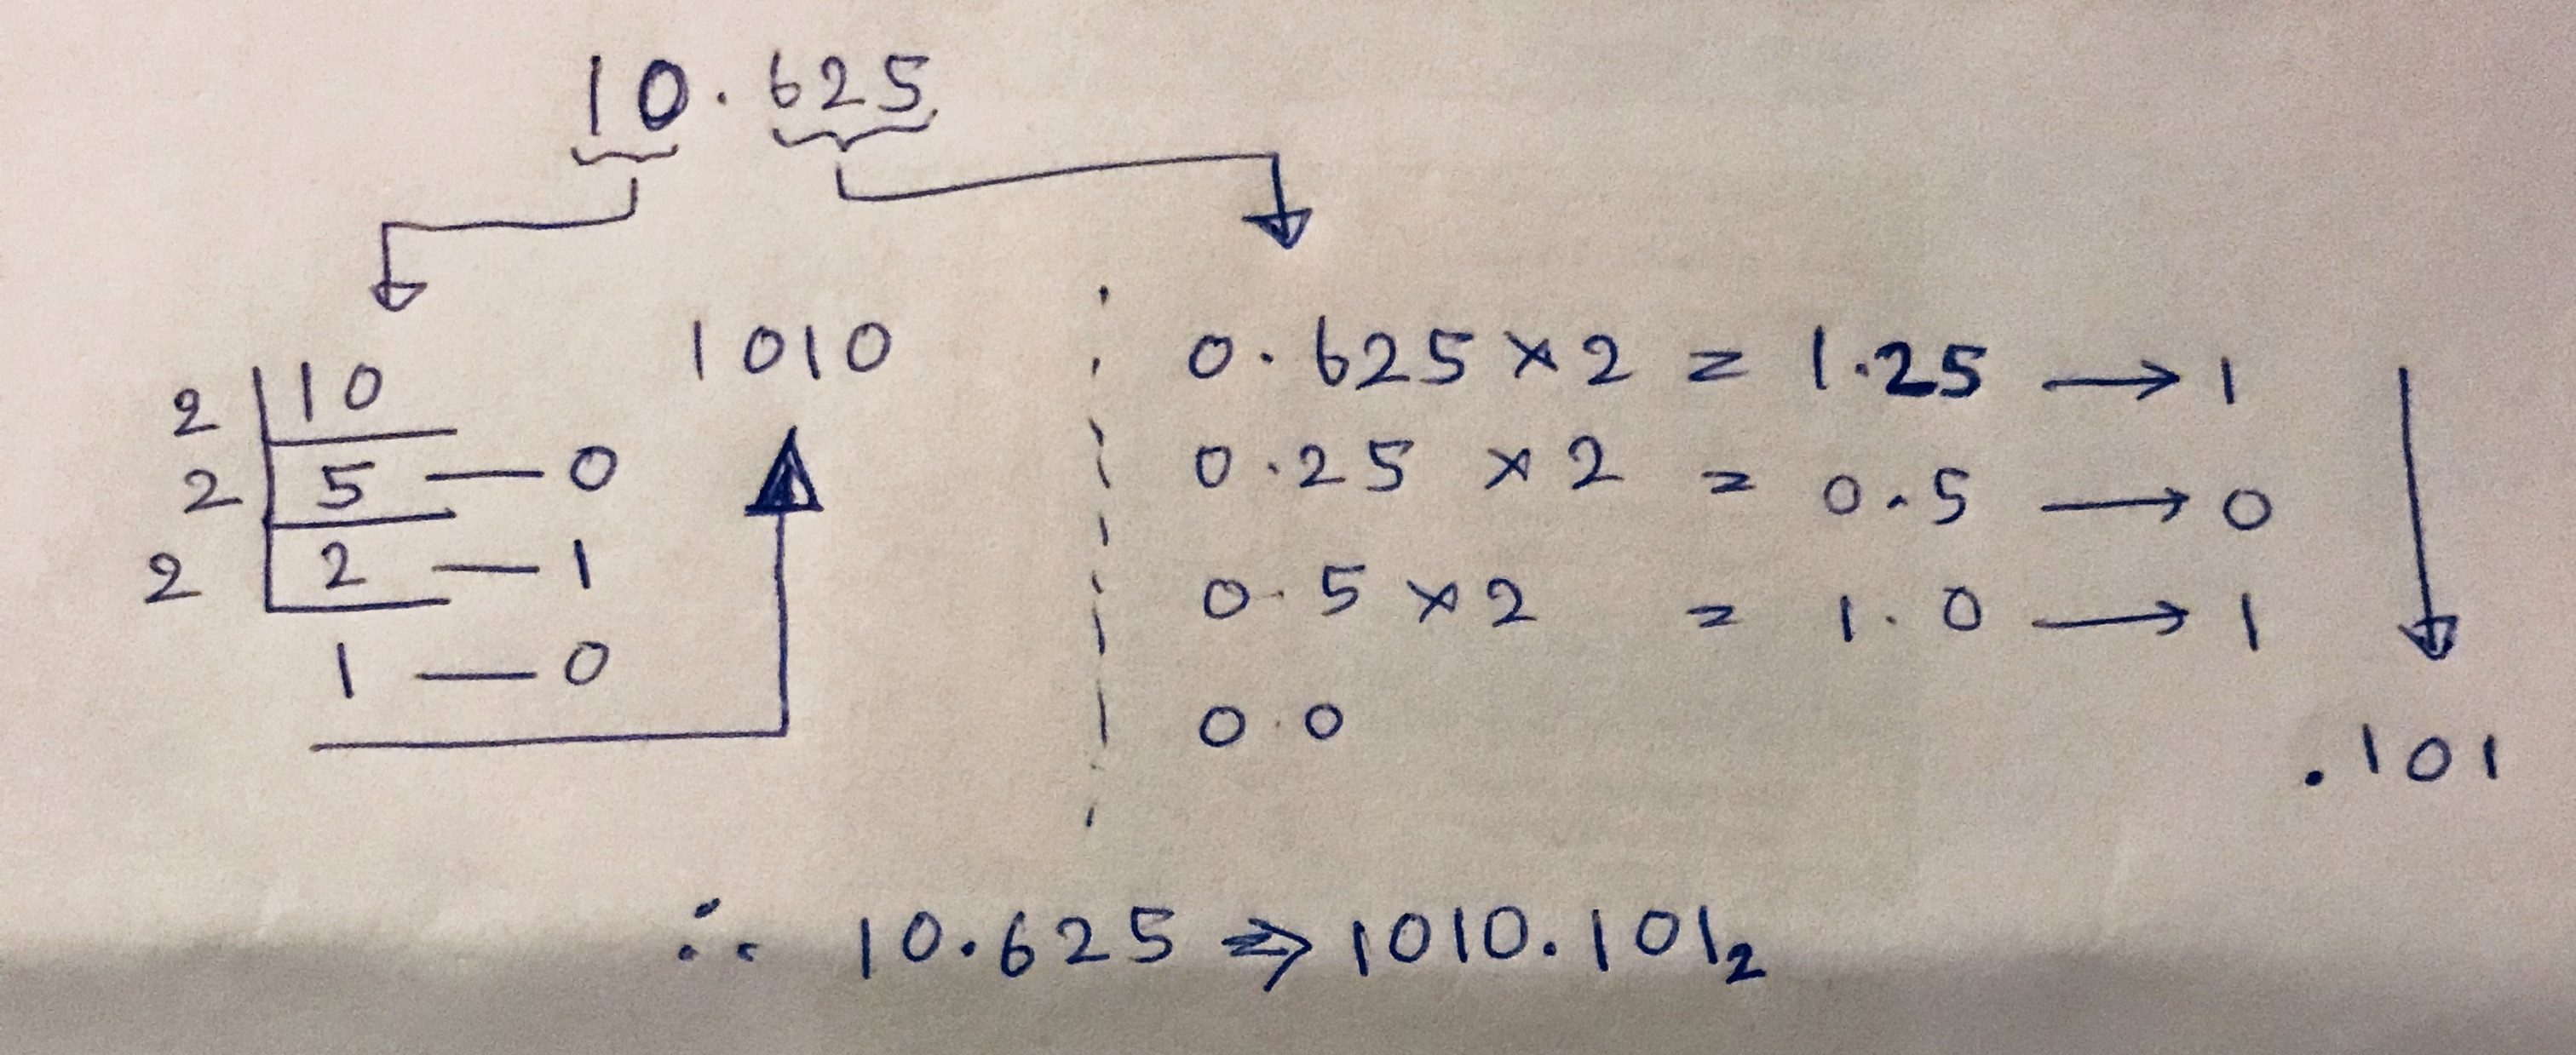 10.625
1010
2 10
2 5 — 0
2 2 — 1
1 — 0
0.625 × 2 = 1.25 → 1
0.25 × 2 = 0.5 → 0
0.5 × 2 = 1.0 → 1
0.0
.101
∴ 10.625 ⇒ 1010.101₂